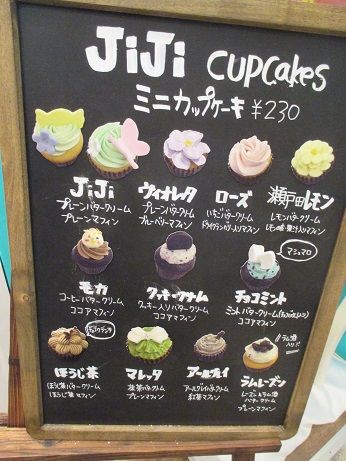 JiJi CUPCakes
ミニカップケーキ ¥230
JiJi
プレーンバタークリーム
プレーンマフィン
ヴィオレッタ
プレーンバタークリーム
ブルーベリーマフィン
ローズ
いちごバタークリーム
瀬戸田レモン
レモンバタークリーム
レモン味・果汁入りマフィン
モカ
コーヒーバタークリーム
ココアマフィン
クッキークリーム
クッキー入りバタークリーム
ココアマフィン
マシュマロ
チョコミント
ミントバタークリーム
ココアマフィン
ほうじ茶
ほうじ茶バタークリーム
ほうじ茶マフィン
マレッタ
抹茶バタークリーム
プレーンマフィン
アールグレイ
アールグレイバタークリーム
紅茶マフィン
ラム酒入り!
ラムレーズン
レーズン&ラム酒
バタークリーム
プレーンマフィン